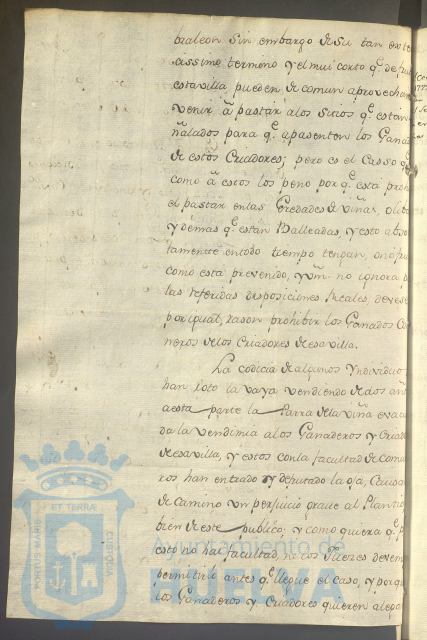 braleon sin embargo de su tan
cissimo termino y el mui corto q.e de
esta villa pueden de comun aprovechar
venir â pastar a los sitios q.e estan
ñalados para q.e apasenten los Gana
de estos Criadores; pero es el casso q.e
como â estos los peno por q.e està proh
el pastar en las Eredades de Viñas, olib
y demas q.e estan Valleadas, y esto abso
lutamente en todo tiempo tengan, onò fru
como està prevenido, y Vm. no ignora p
las referidas disposiciones Reales, deve se
por igual, razon prohibir los Ganados Ca
neros de los Criadores de esa villa.
La codicia de algunos Yndividuo
han roto la vaya vendiendo de dos añ
a esta parte la Parra de la Viña evacua
da la vendimia a los Ganaderos y Criad
de esa villa, y estos con la facultad de com
ros han entrado y disfrutado la oja, Causan
de camino un perjuicio grave al Plantio
bien de este publico; y como quiera q.e p
esto no hai facultad, ni los Juezes deven
permitirlo antes q.e llegue el caso, y porq.e
los Ganaderos y Criadores quieren alega
PORTUS MARIS
ET TERRÆ
CUSTODIA
Ayuntamiento de
HUELVA